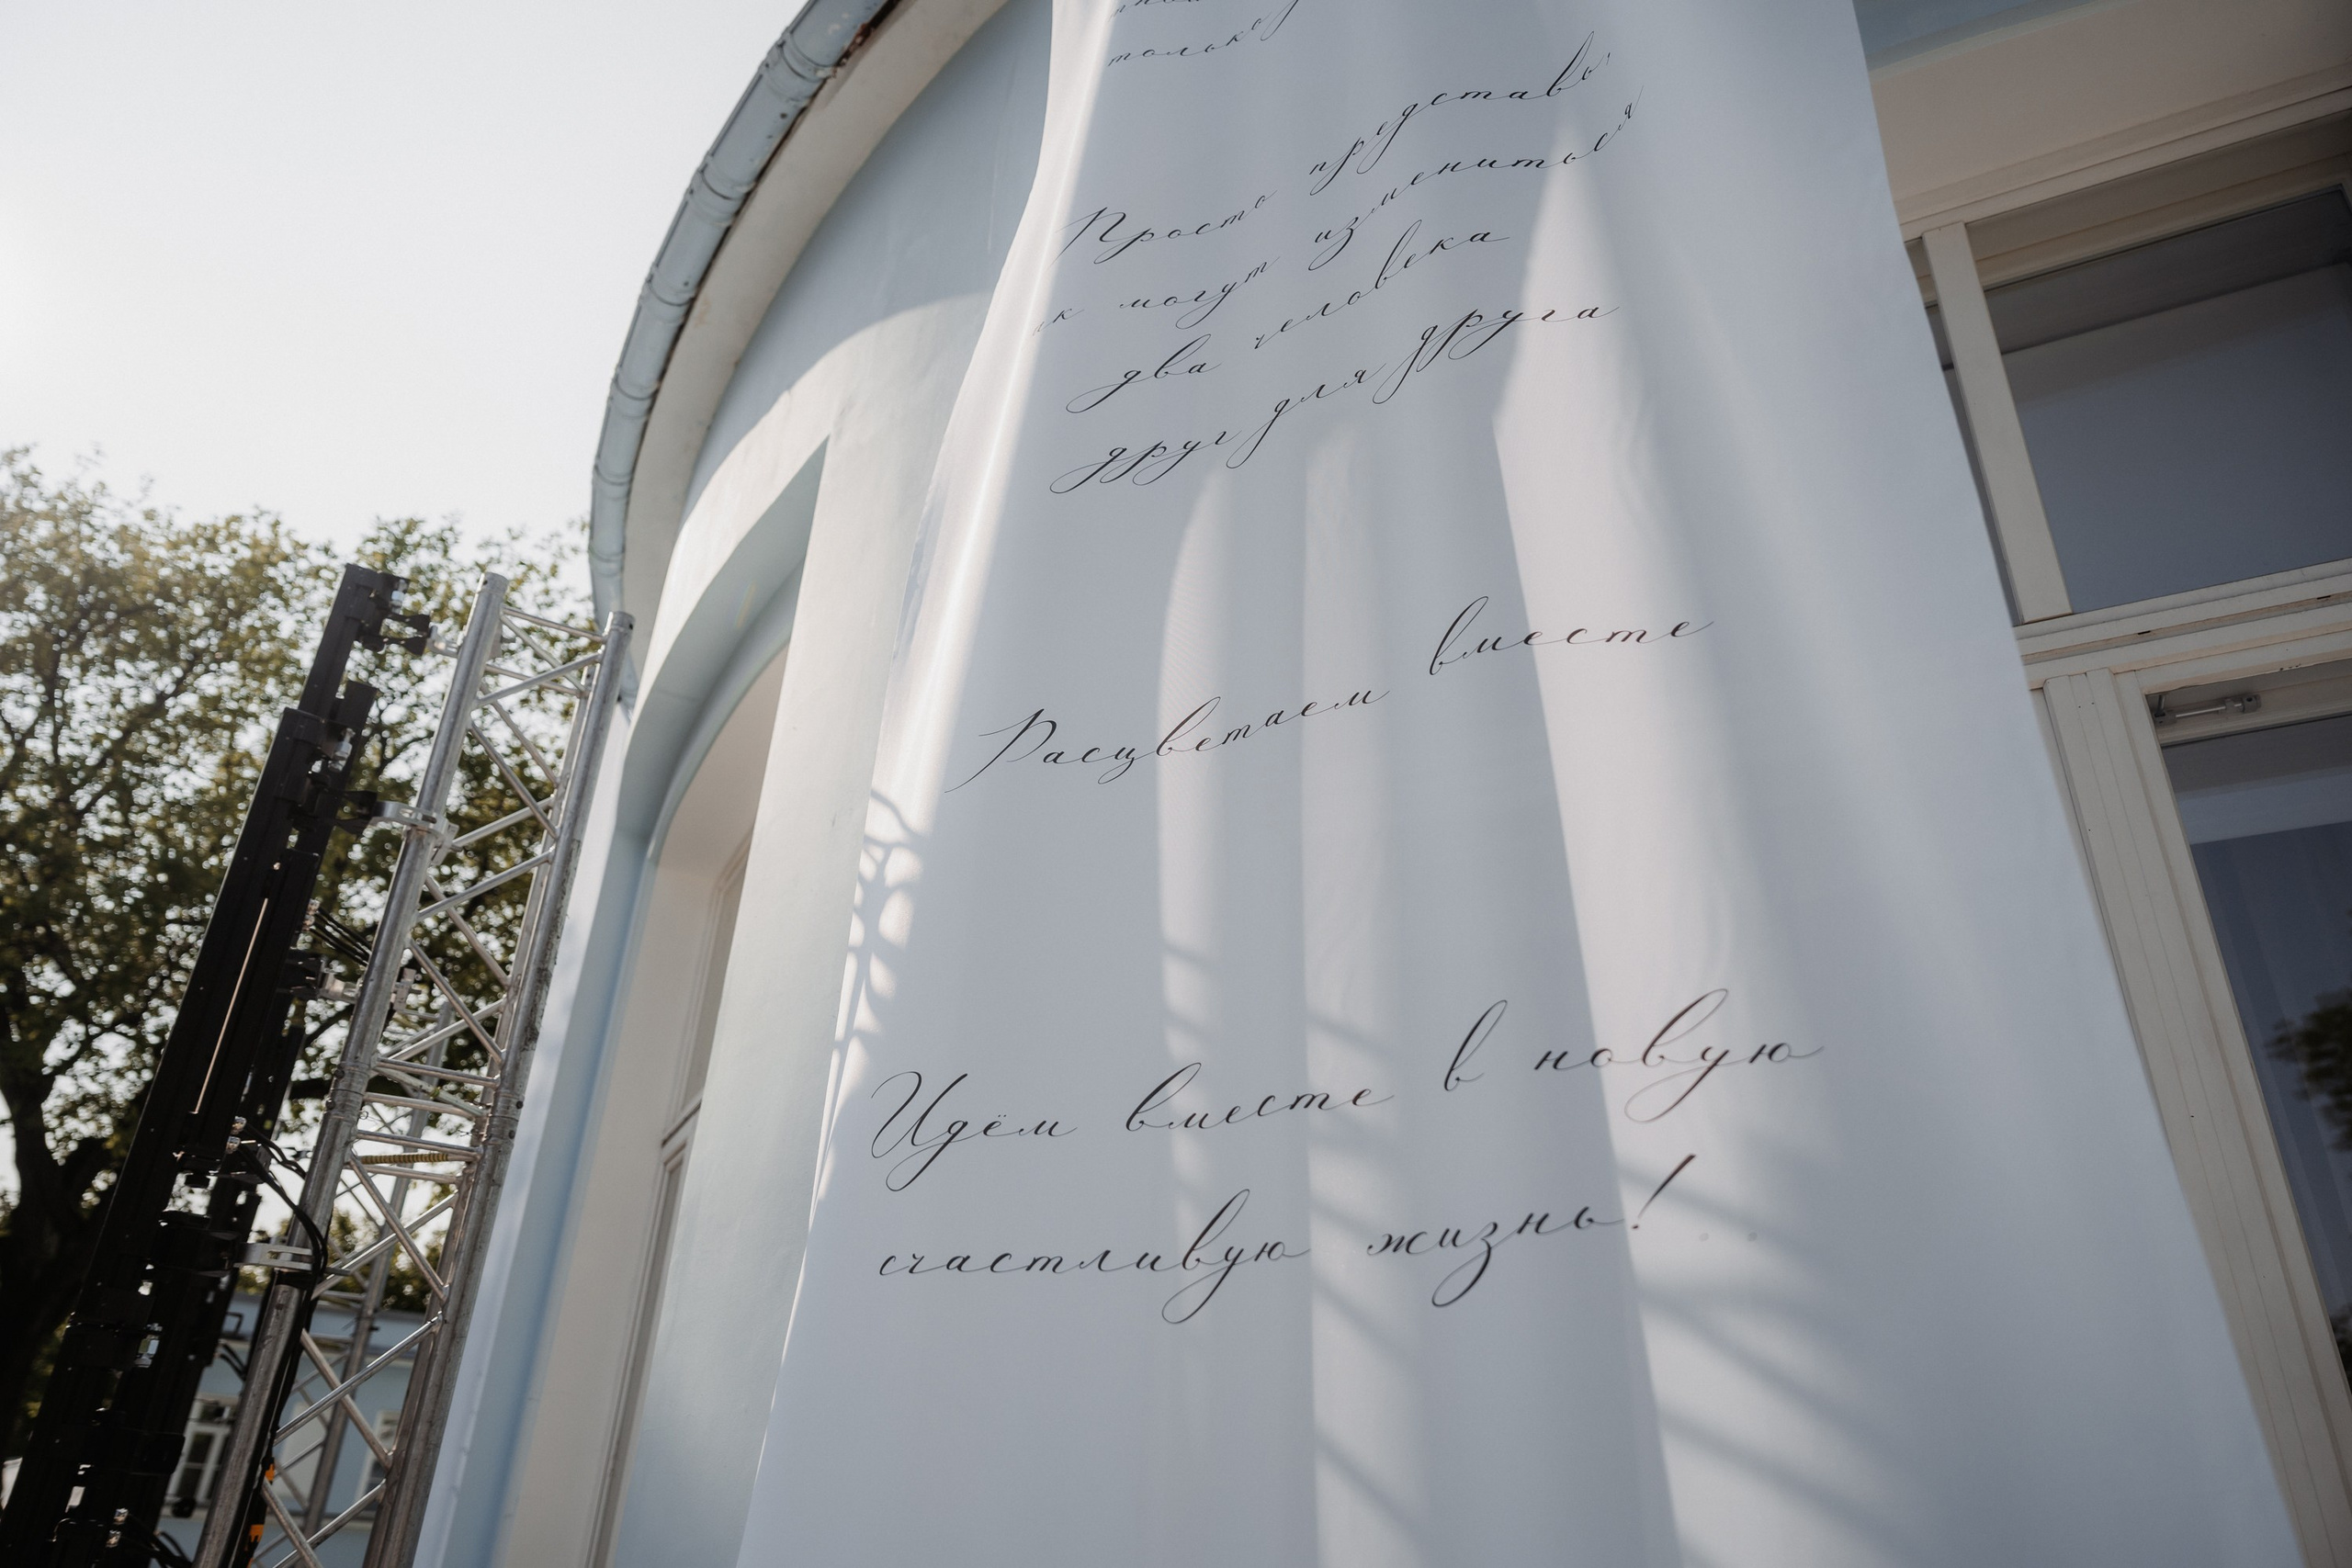 только
Просто представь,
как могут измениться
два человека
друг для друга
Расцветаем вместе
Идём вместе в новую
счастливую жизнь!